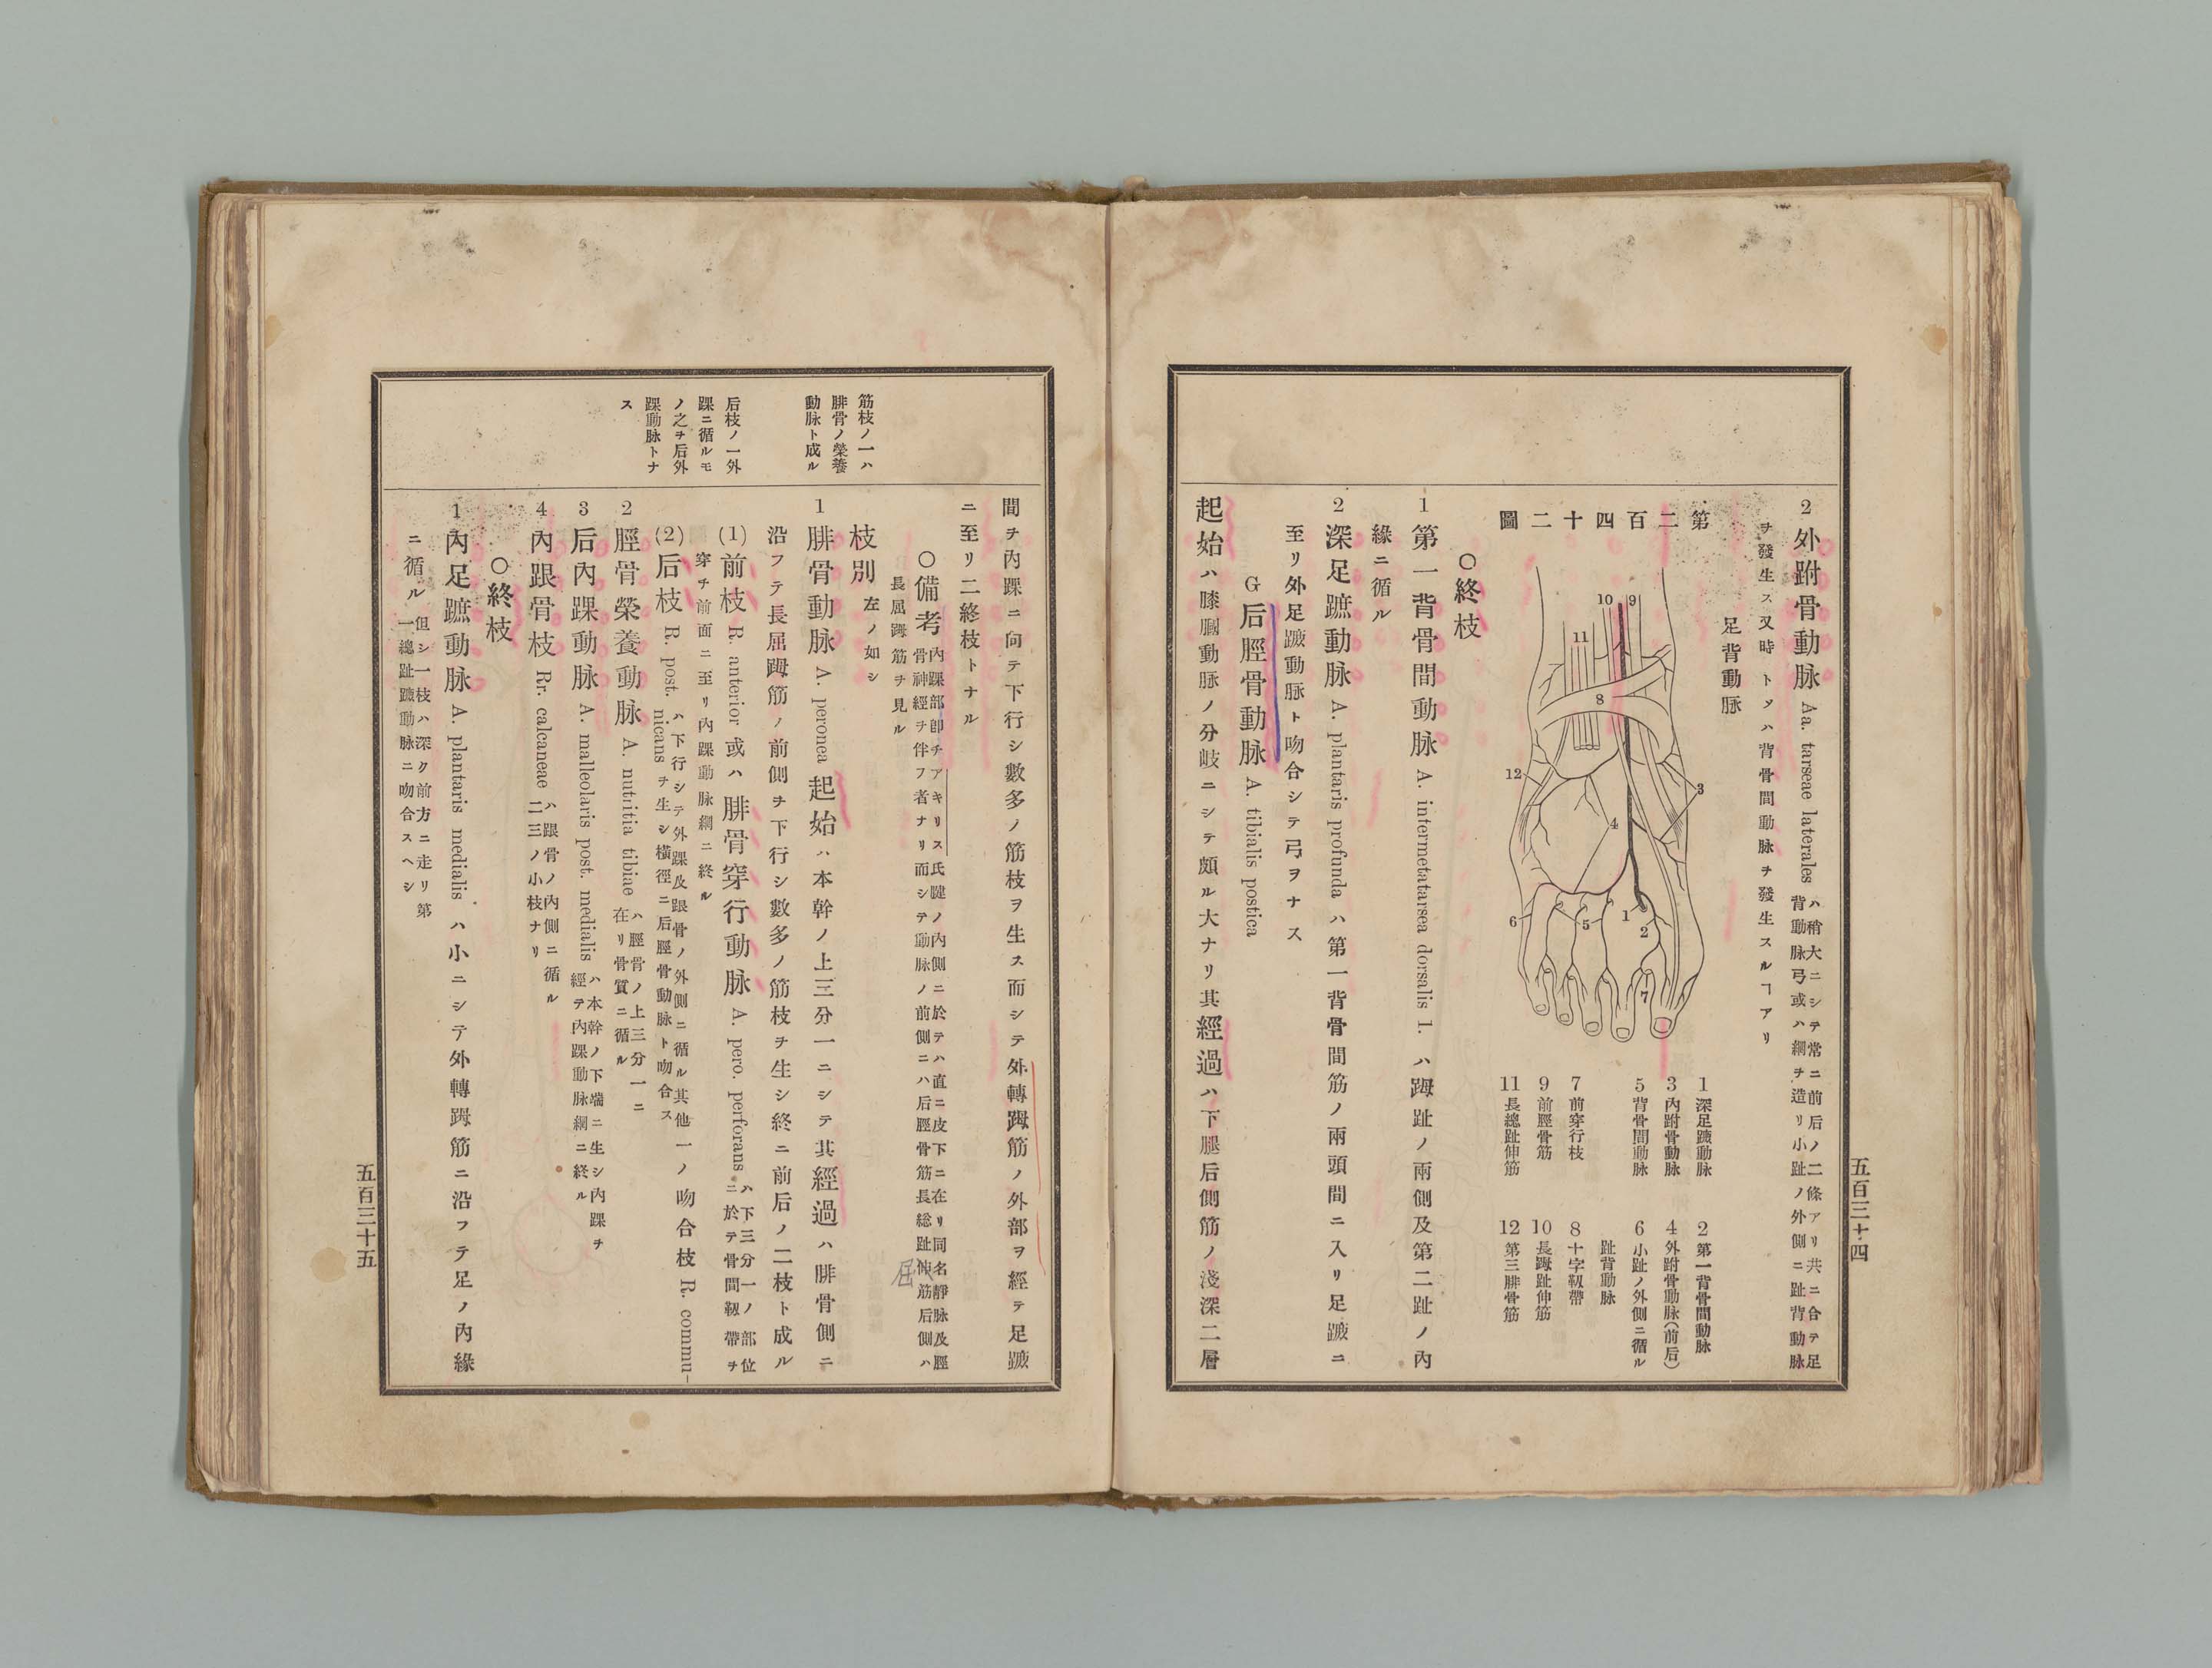 五百三十四
2 外跗骨動脉 Aa. tarseae laterales ハ稍大ニシテ常ニ前后ノ二條アリ共ニ合テ足
背動脉弓或ハ網ヲ造リ小趾ノ外側ニ趾背動脉
ヲ發生ス又時トソハ背骨間動脉ヲ發生スルヿアリ
足背動脉
第二百四十二圖
10
9
11
8
12
3
4
6
5
1
2
7
1 深足蹠動脉
2 第一背骨間動脉
3 內跗骨動脉
4 外跗骨動脉(前后)
5 背骨間動脉
6 小趾ノ外側ニ循ル
趾背動脉
7 前穿行枝
8 十字靱帶
9 前脛骨筋
10 長踇趾伸筋
11 長總趾伸筋
12 第三腓骨筋
○終枝
1 第一背骨間動脉 A. intermetatarsea dorsalis 1. ハ踇趾ノ兩側及第二趾ノ內
緣ニ循ル
2 深足蹠動脉 A. plantaris profunda ハ第一背骨間筋ノ兩頭間ニ入リ足蹠ニ
至リ外足蹠動脉ト吻合シテ弓ヲナス
G 后脛骨動脉 A. tibialis postica
起始ハ膝膕動脉ノ分岐ニシテ頗ル大ナリ其經過ハ下腿后側筋ノ淺深二層
間ヲ內踝ニ向テ下行シ數多ノ筋枝ヲ生ス而シテ外轉踇筋ノ外部ヲ經テ足蹠
ニ至リ二終枝トナル
○備考 內踝部卽チアキリス氏腱ノ內側ニ於テハ直ニ皮下ニ在リ同名靜脉及脛
骨神經ヲ伴フ者ナリ而シテ動脉ノ前側ニハ后脛骨筋長総趾伸筋后側ハ
屈
長屈踇筋ヲ見ル
枝別 左ノ如シ
筋枝ノ一ハ
腓骨ノ榮養
動脉ト成ル
1 腓骨動脉 A. peronea 起始ハ本幹ノ上三分一ニシテ其經過ハ腓骨側ニ
沿フテ長屈踇筋ノ前側ヲ下行シ數多ノ筋枝ヲ生シ終ニ前后ノ二枝ト成ル
后枝ノ一外
踝ニ循ルモ
ノ之ヲ后外
踝動脉トナ
ス
(1) 前枝 R. anterior 或ハ腓骨穿行動脉 A. pero. perforans ハ下三分一ノ部位
ニ於テ骨間靱帶ヲ
穿チ前面ニ至リ內踝動脉網ニ終ル
(2) 后枝 R. post. ハ下行シテ外踝及跟骨ノ外側ニ循ル其他一ノ吻合枝 R. commu-
nicans ヲ生シ橫徑ニ后脛骨動脉ト吻合ス
2 脛骨榮養動脉 A. nutritia tibiae ハ脛骨ノ上三分一ニ
在リ骨質ニ循ル
3 后內踝動脉 A. malleolaris post. medialis ハ本幹ノ下端ニ生シ內踝ヲ
經テ內踝動脉網ニ終ル
4 內跟骨枝 Rr. calcaneae ハ跟骨ノ內側ニ循ル
二三ノ小枝ナリ
○終枝
1 內足蹠動脉 A. plantaris medialis ハ小ニシテ外轉踇筋ニ沿フテ足ノ內緣
ニ循ル 但シ一枝ハ深ク前方ニ走リ第
一總趾蹠動脉ニ吻合スヘシ
五百三十五